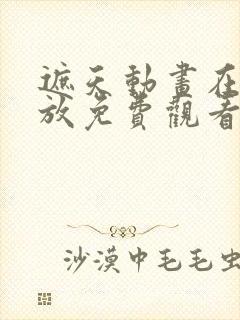 遮天動畫在
放免費觀看
沙漠中毛毛虫